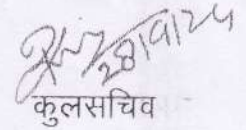 28/9/24
कुलसचिव